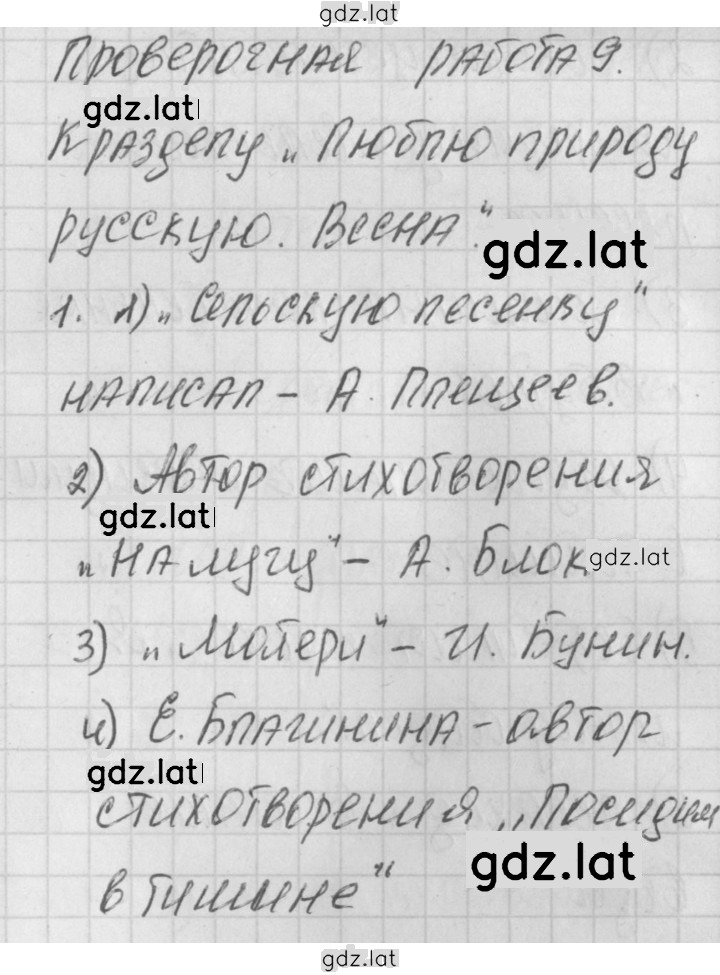 gdz.lat
Проверочная работа 9.
gdz.lat
К разделу „Люблю природу
русскую. Весна."
gdz.lat
1. 1) „Сельскую песенку"
написал - А. Плещеев.
2) Автор стихотворения
gdz.lat
„На лугу" - А. Блок
gdz.lat
3) „Матери" - И. Бунин.
4) Е. Благинина - автор
gdz.lat
стихотворения „Посидим
gdz.lat
в тишине"
gdz.lat